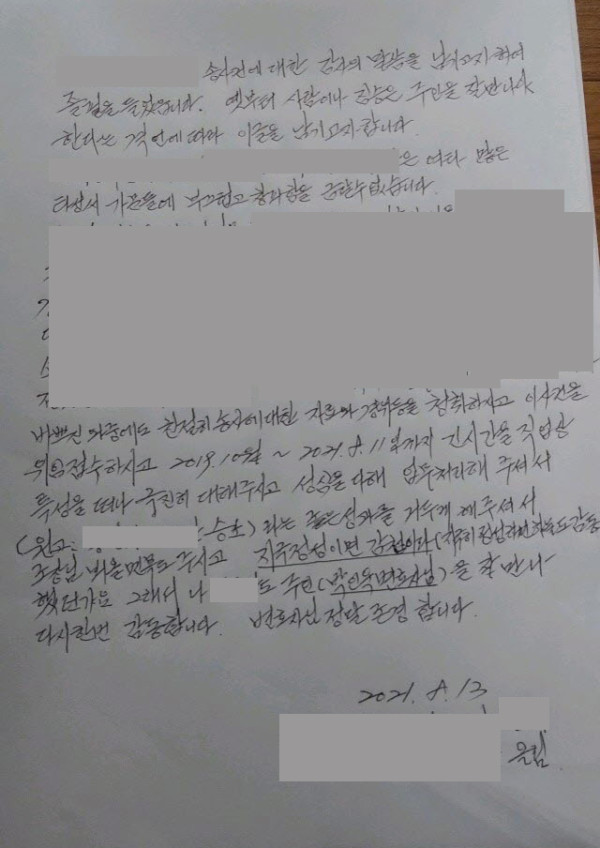 송사건에 대한 감사의 말씀을 남기고자하여
줄필을 들었습니다. 옛부터 사람이나 짐승은 주인을 잘만나야
한다는 격언에따라 이글을 남기고자합니다.
은 여타 많은
타성서 가문들에 부끄럽고 창피함을 금할수없습니다.
바쁘신 와중에도 친절히 송사에대한 자료와 경위등을 청취하시고 이사건을
위임접수하시고 2019.10월 ~ 2021.8.11일까지 긴시간을 직업상
특성을 떠나 극진히 대해주시고 성심을 다해 업무처리해 주셔서
(원고: 승소)라는 좋은성과를 거두게 해주셔서
조상님 뵈올면목도주시고 지극정성이면 감천이라(지극히 정성하면 하늘도감동
했던가요 그래서 나 도 주인(박인욱변호사님)을 잘 만나
다시한번 감동합니다. 변호사님 정말 존경 합니다.
2021. 8. 13
올림